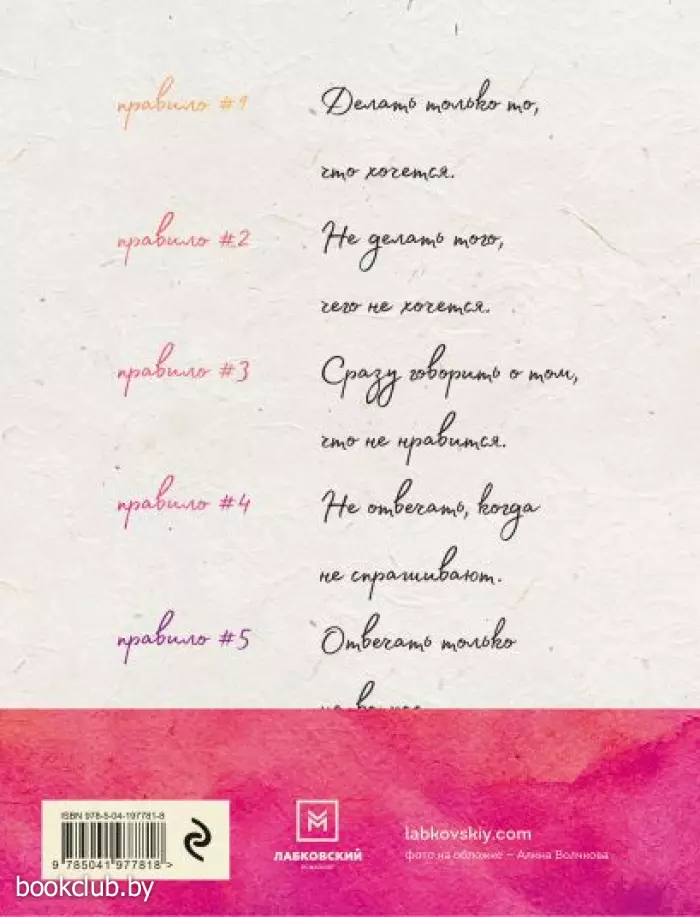 правило #1 Делать только то,
что хочется.
правило #2 Не делать того,
чего не хочется.
правило #3 Сразу говорить о том,
что не нравится.
правило #4 Не отвечать, когда
не спрашивают.
правило #5 Отвечать только
ISBN 978-5-04-197781-8
9 785041 977818 >
ЛАБКОВСКИЙ
labkovskiy.com
фото на обложке – Алина Волчкова
bookclub.by